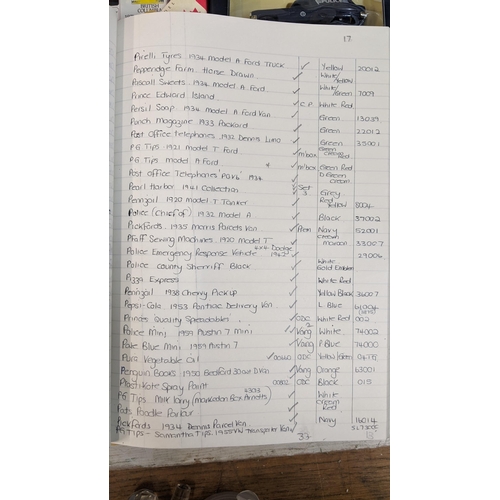 17
Pirelli Tyres 1934 Model A Ford Truck ✓ Yellow 20012
Pepperidge Farm Horse Drawn ✓ White/Yellow
Pascall Sweets 1934 Model A Ford ✓ White/Green 7009
Prince Edward Island ✓
Persil Soap 1934 Model A Ford Van ✓ C.P. White Red
Punch Magazine 1933 Packard ✓ Green 13039
Post Office Telephones 1932 Dennis Limo ✓ Green 22012
PG Tips 1921 Model T Ford ✓ m'box Green Cream Red 35001
PG Tips Model A Ford ✓ m'box Green Red
Post Office Telephones 1934 ✓ D Green Cream
Pearl Harbor 1941 Collection ✓ Set 3 Grey
Penngoil 1920 Model T Tanker ✓ Red Yellow 8004
Police (Chief of) 1932 Model A ✓ Black 39002
Pickfords 1935 Morris Parcels Van ✓ Navy 52001
Pfaff Sewing Machines 1920 Model T ✓ Cream maroon 33007
Police Emergency Response Vehicle 4x4 Dodge 1942 ✓ 29006
Police County Sherriff Black ✓ White Gold Emblem
Pizza Express ✓ White Red
Penngoil 1938 Chevy Pick up ✓ Yellow Black 36007
Pepsi-Cola 1953 Pontiac Delivery Van ✓ L. Blue
Princes Quality Spreadables ✓ ODC 2 White Red 002
Police Mini 1959 Austin 7 Mini ✓ Vang White 74002
Pale Blue Mini 1959 Austin 7 ✓ Vang P. Blue 74000
Pura Vegetable Oil ✓ 00440 ODC Yellow/Green
Penguin Books 1950 Bedford 30cwt D.Van ✓ Vang Orange 63001
Plasti-Kote Spray Paint 00802 ODC Black 015
PG Tips Milk Lorry (Markeaton Box Annetts) 4303 ✓ White Cream Red
Pats Poodle Parlour ✓
Pickfords 1934 Dennis Parcel Van ✓ Navy 16014
PG Tips - Samantha Tips 1955 VW Transporter Van ✓
33